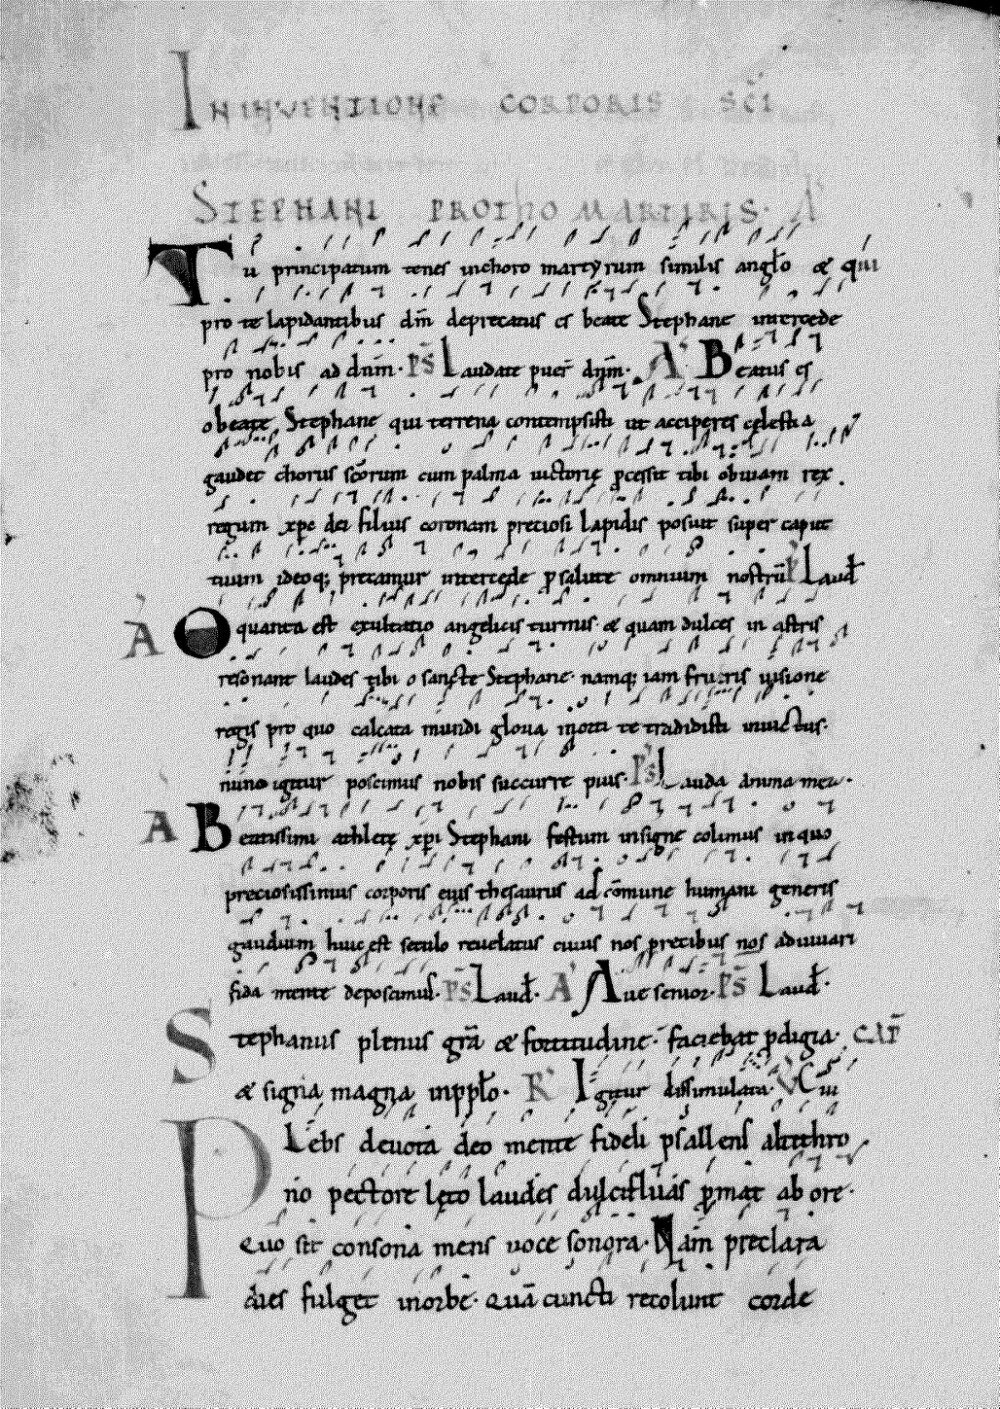 IN INVENTIONE CORPORIS SCI
STEPHANI PROTHO MARTIRIS. A
Tu principatum tenes inchoro martyrum similis anglo & qui
pro te lapidantibus dm deprecatus es beate Stephane intercede
pro nobis ad dnm. PS Laudate puer dnm. A Beatus es
o beate Stephane qui terrena contempsisti ut acciperes celestia
gaudet chorus scorum cum palma victorię pcessit tibi obviam rex
regum xpc dei filius coronam preciosi lapidis posuit super caput
tuum ideoq; precamur intercede p salute omnium nostru PS Laud
A O quanta est exultatio angelicis turmis & quam dulces in astris
resonant laudes tibi o sancte Stephane namq; iam frueris visione
regis pro quo calcata mundi gloria morti te tradidisti invictus.
nunc igitur poscimus nobis succurre pius. PS Lauda anima mea.
A Beatissimi athletę xpi Stephani festum insigne colimus in quo
preciosissimus corporis eius thesaurus ad comune humani generis
gaudium huic est seculo revelatus cuius nos precibus nos adiuvari
fida mente deposcimus. PS Laud. A Ave senior. PS Laud.
Stephanus plenus gra & fortitudine faciebat pdigia. CAP
& signa magna in pplo. R Igitur dissimulata V Cui
PLebs devota deo mente fideli psallens altithro
no pectore lęto laudes dulcifluas pmat ab ore.
Quo sit consona mens voce sonora. Nam preclara
dies fulget in orbe. Qua cuncti recolunt corde